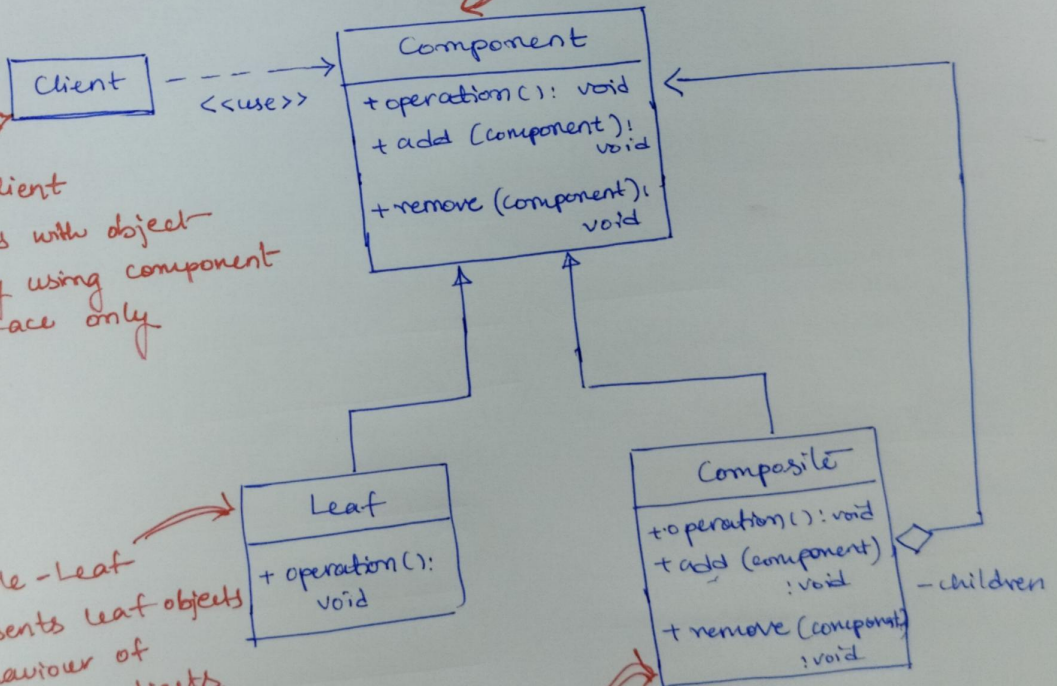 Component
Client
<<use>>
+operation(): void
+ add (component):
void
+remove (component):
void
with object
using component
only
Leaf
+ operation():
void
Composite
+operation(): void
+ add (component)
:void
+ remove (component)
:void
-children
-Leaf
leaf objects
of